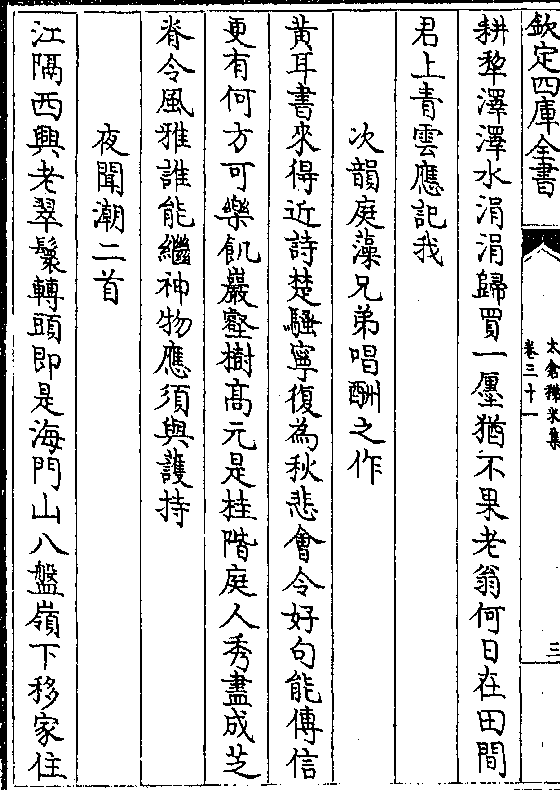 欽定四庫全書
太倉稊米集
卷三十一
三
耕犂澤澤水涓涓歸買一廛猶不果老翁何日在田間
君上青雲應記我
次韻庭藻兄弟唱酬之作
黄耳書來得近詩楚騷寧復為秋悲會令好句能傳信
更有何方可樂飢巖壑樹髙元是桂階庭人秀盡成芝
脊令風雅誰能繼神物應須與䕶持
夜聞潮二首
江隔西興老翠鬟轉頭即是海門山八盤嶺下移家住